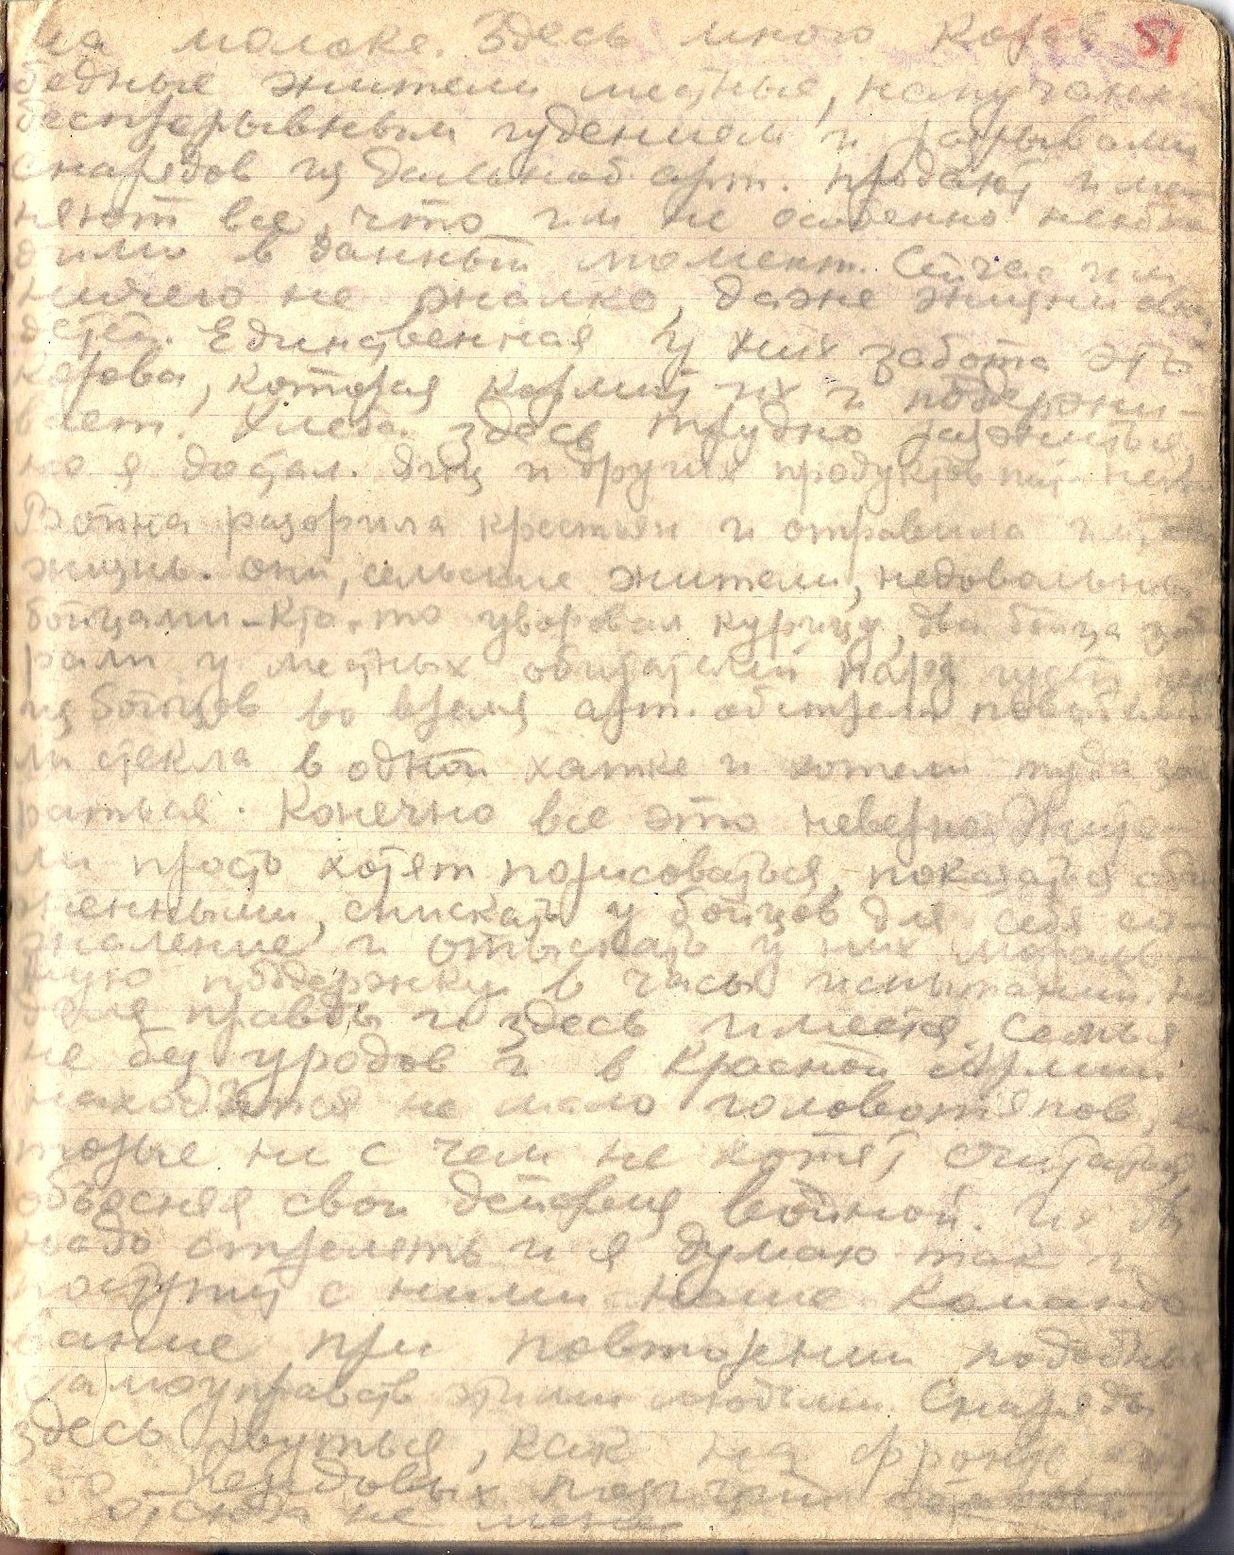 на молоке. Здесь много коров 51
бедные жители местные, напуганн
беспрерывным гудением и разрывами
снарядов из дальнобо. арт. продают и ме-
няют все, что им не особенно необхо
димо в данный момент. Сейчас им
ничего не жалко, даже жизни своих
детей. Единственная у них забота это
корова, которая кормит их и поддержи-
вает. Хлеба здесь трудно разжиться,
но я достал. Яиц и других продуктов нет
Война разорила крестьян и отравила им
жизнь. Они, сельские жители, недовольны
бойцами – кто-то уворовал курицу, два бойца заб
рали у местных обитателей пару гусей,
из бойцов во время арт. обстрела
ли стекла в одной хатке и хотели туда заб
раться. Конечно все это неверно. Жите-
ли просто хотят порисоваться, показаться оби
женными, снискать у бойцов для себя со-
жаление и отыскать у них мораль-
ную поддержку в часы испытаний. Но
доля правды и здесь имеется. Семья
не без уродов и в Красной Армии
находится не мало головотяпов, ко
торые ни с чем не хотят считаться,
объясняя свои действия войной. Их бы
надо стрелять и я думаю так и
поступит с ними наше командо
вание при повторении подобных
самоуправств этими людьми. Снаряды
здесь рвуться, как на фронте,
до передовых позиций
отсюда не мене